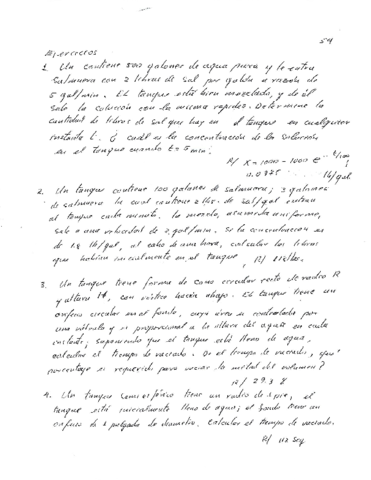 54
Ejercicios
1. Un contiene 500 galones de agua pura y le entra
salmuera con 2 libras de sal por galón a razón de
5 gal/min. El tanque está bien mezclado, y de él
sale la solución con la misma rapidez. Determine la
cantidad de libras de sal que hay en el tanque en cualquier
instante t. ¿ cuál es la concentración de la solución
en el tanque cuando t = 5 min.
R/ x = 1000 - 1000 e
lb/gal
2. Un tanque contiene 100 galones de salmuera; 3 galones
de salmuera la cual contiene 2 lbs. de sal/gal entran
al tanque cada minuto. La mezcla, asumida uniforme,
sale a una velocidad de 2 gal/min. Si la concentración es
de 1.8 lb/gal, al cabo de una hora, calcular las libras
que habían inicialmente en el tanque R/
3. Un tanque tiene forma de cono circular recto de radio R
y altura H, con vértice hacia abajo. El tanque tiene un
orificio circular en el fondo, cuya área es controlada por
una válvula y es proporcional a la altura del agua en cada
instante; suponiendo que el tanque está lleno de agua,
calcular el tiempo de vaciado. De el tiempo de vaciado, que
porcentaje es requerido para vaciar la mitad del volumen?
R/ 29.3 %
4. Un tanque semiesférico tiene un radio de 1 pie, el
tanque está inicialmente lleno de agua; el fondo tiene un
orificio de 1 pulgada de diámetro. Calcular el tiempo de vaciado.
R/ 112 seg